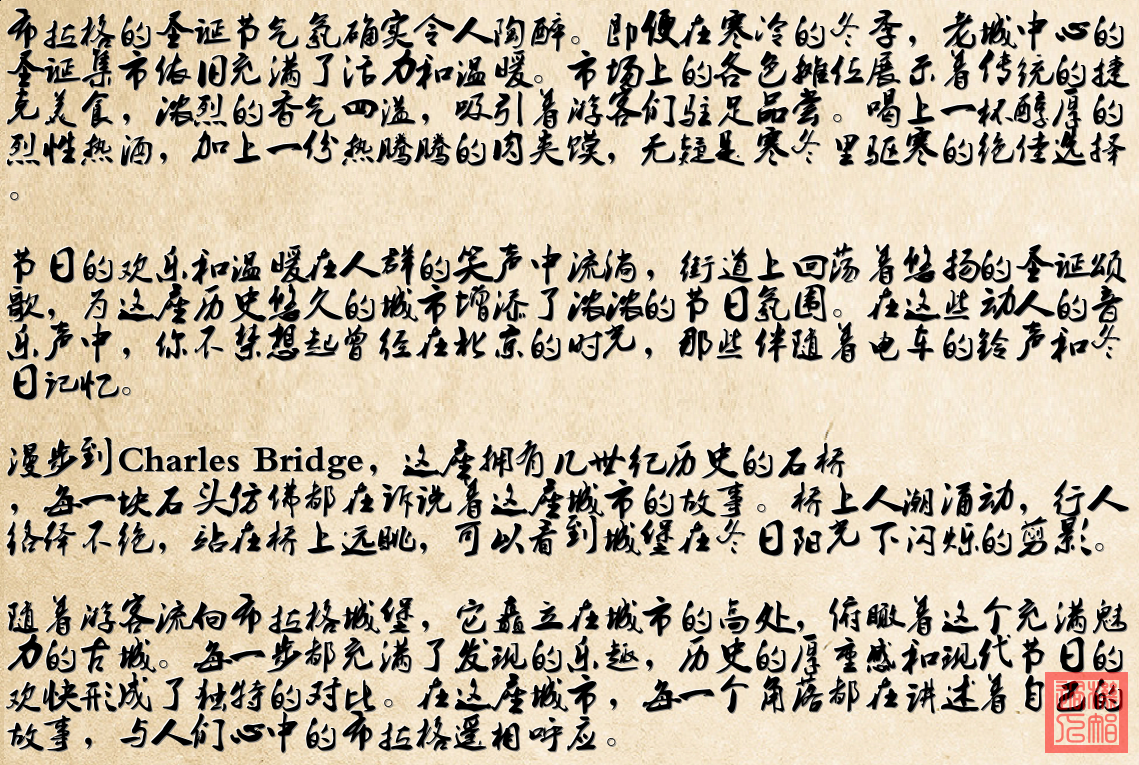 布拉格的圣诞节气氛确实令人陶醉。即便在寒冷的冬季，老城中心的
圣诞集市依旧充满了活力和温暖。市场上的各色摊位展示着传统的捷
克美食，浓烈的香气四溢，吸引着游客们驻足品尝。喝上一杯醇厚的
烈性热酒，加上一份热腾腾的肉夹馍，无疑是寒冬里驱寒的绝佳选择
。
节日的欢乐和温暖在人群的笑声中流淌，街道上回荡着悠扬的圣诞颂
歌，为这座历史悠久的城市增添了浓浓的节日氛围。在这些动人的音
乐声中，你不禁想起曾经在北京的时光，那些伴随着电车的铃声和冬
日记忆。
漫步到Charles Bridge，这座拥有几世纪历史的石桥
，每一块石头仿佛都在诉说着这座城市的故事。桥上人潮涌动，行人
络绎不绝，站在桥上远眺，可以看到城堡在冬日阳光下闪烁的剪影。
随着游客流向布拉格城堡，它矗立在城市的高处，俯瞰着这个充满魅
力的古城。每一步都充满了发现的乐趣，历史的厚重感和现代节日的
欢快形成了独特的对比。在这座城市，每一个角落都在讲述着自己的
故事，与人们心中的布拉格遥相呼应。